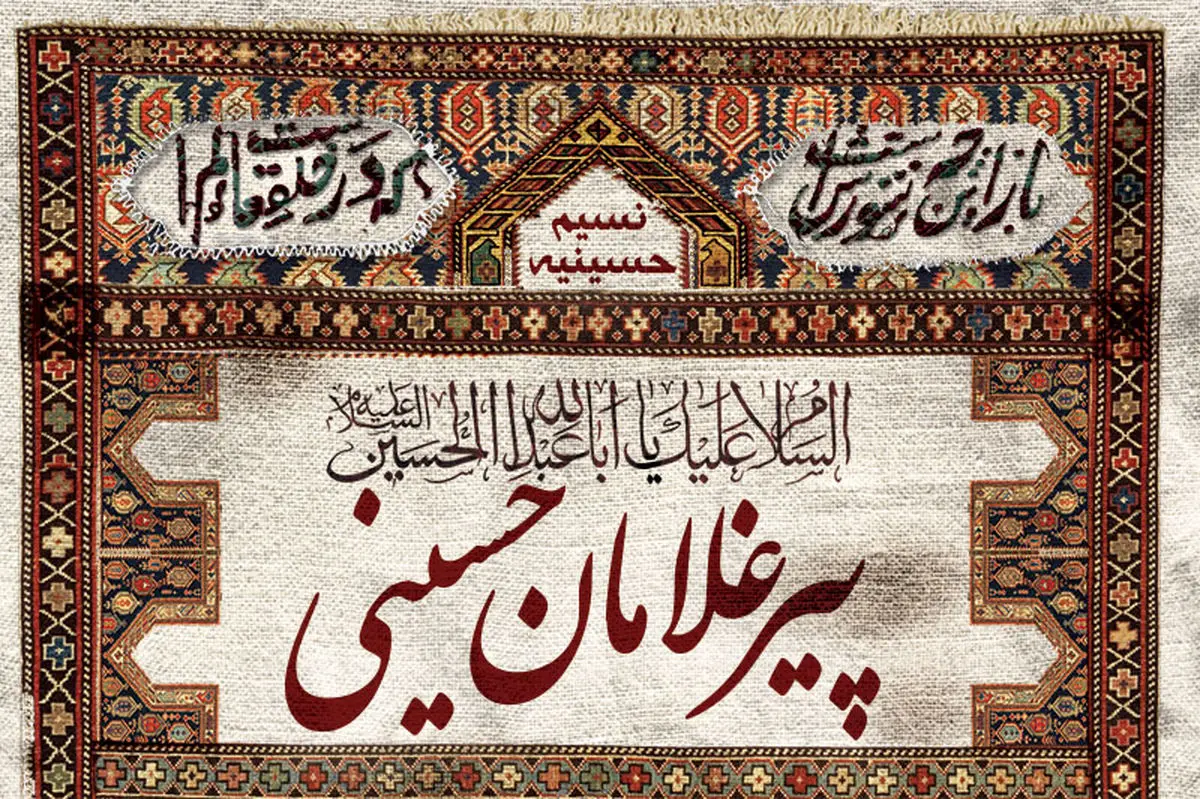 باز این چه شورش است
که در خلق عالم است
نسیم
حسینیه
السلام علیک یا اباعبدالله الحسین علیه السلام
پیرغلامان حسینی